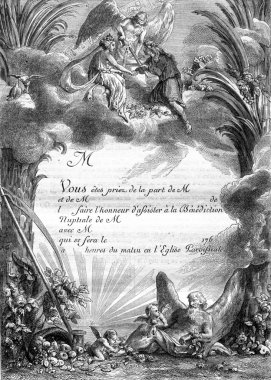 M
Vous êtes priez de la part de M
et de M de
l faire l'honneur d'assister à la Bénédiction
Nuptiale de M
avec M
qui se fera le 176
a heures du matin en l'Eglise Paroissiale